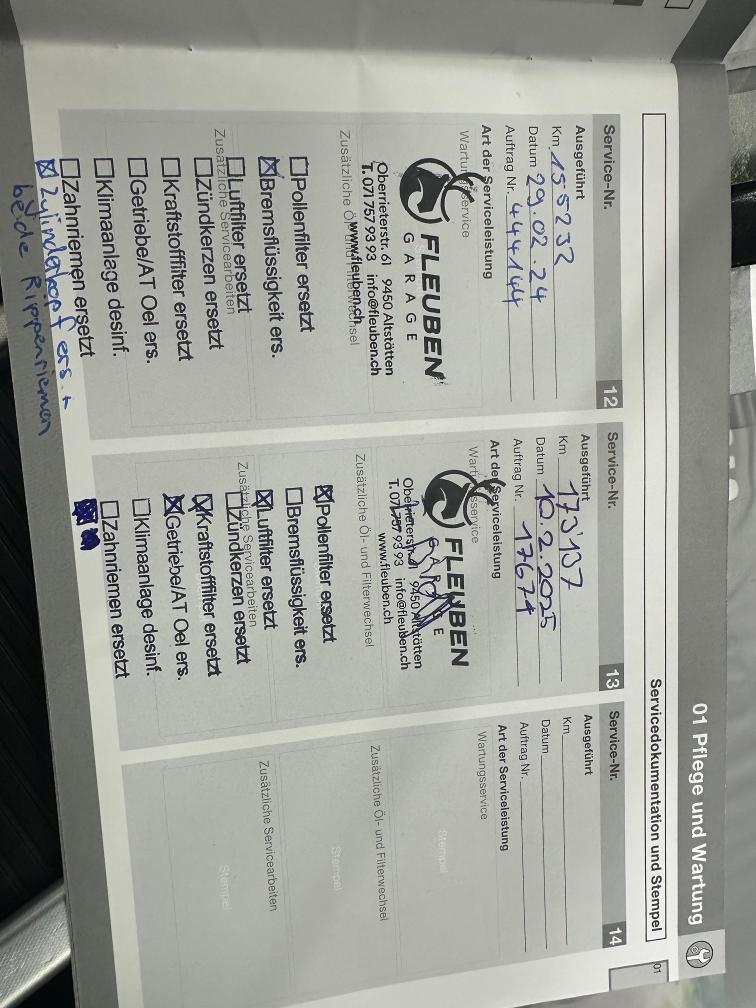 01 Pflege und Wartung
01
Servicedokumentation und Stempel
Service-Nr. 12
Ausgeführt
Km 155232
Datum 29.02.24
Auftrag Nr. 444144
Art der Serviceleistung
Wartungsservice
FLEUBEN
GARAGE
Oberrieterstr. 61 9450 Altstätten
T. 071 757 93 93 info@fleuben.ch
www.fleuben.ch
Zusätzliche Öl- und Filterwechsel
☐Pollenfilter ersetzt
☒Bremsflüssigkeit ers.
☐Luftfilter ersetzt
Zusätzliche Servicearbeiten
☐Zündkerzen ersetzt
☐Kraftstofffilter ersetzt
☐Getriebe/AT Oel ers.
☐Klimaanlage desinf.
☐Zahnriemen ersetzt
☒ Zylinderkopf ers. +
beide Rippenriemen
Service-Nr. 13
Ausgeführt
Km 173'137
Datum 10.2.2025
Auftrag Nr. 17674
Art der Serviceleistung
Wartungsservice
FLEUBEN
GARAGE
Oberrieterstr. 61 9450 Altstätten
T. 071 757 93 93 info@fleuben.ch
www.fleuben.ch
Zusätzliche Öl- und Filterwechsel
☒Pollenfilter ersetzt
☐Bremsflüssigkeit ers.
☒Luftfilter ersetzt
Zusätzliche Servicearbeiten
☐Zündkerzen ersetzt
☒Kraftstofffilter ersetzt
☒Getriebe/AT Oel ers.
☐Klimaanlage desinf.
☐Zahnriemen ersetzt
Service-Nr. 14
Ausgeführt
Km
Datum
Auftrag Nr.
Art der Serviceleistung
Wartungsservice
Stempel
Zusätzliche Öl- und Filterwechsel
Stempel
Zusätzliche Servicearbeiten
Stempel